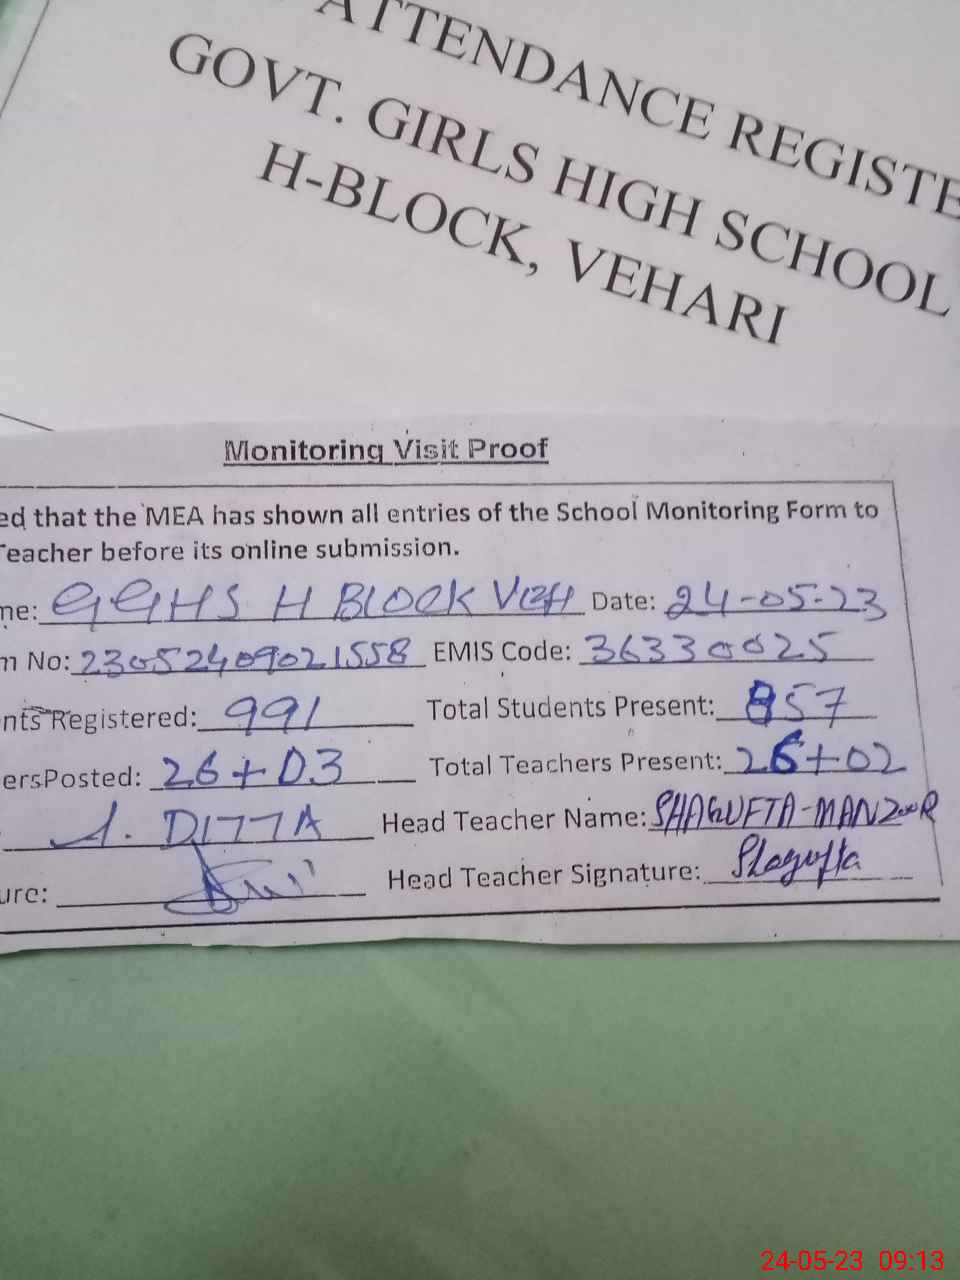 ATTENDANCE REGISTE
GOVT. GIRLS HIGH SCHOOL
H-BLOCK, VEHARI
Monitoring Visit Proof
ed that the MEA has shown all entries of the School Monitoring Form to
Teacher before its online submission.
me: GGHS H BLOCK VEH Date: 24-05-23
m No: 23052409021558 EMIS Code: 36330025
nts Registered: 991 Total Students Present: 857
ersPosted: 26+03 Total Teachers Present: 26+02
A. DITTA Head Teacher Name: SHAGUFTA-MANZOOR
ure: Head Teacher Signature: Shagufta
24-05-23 09:13